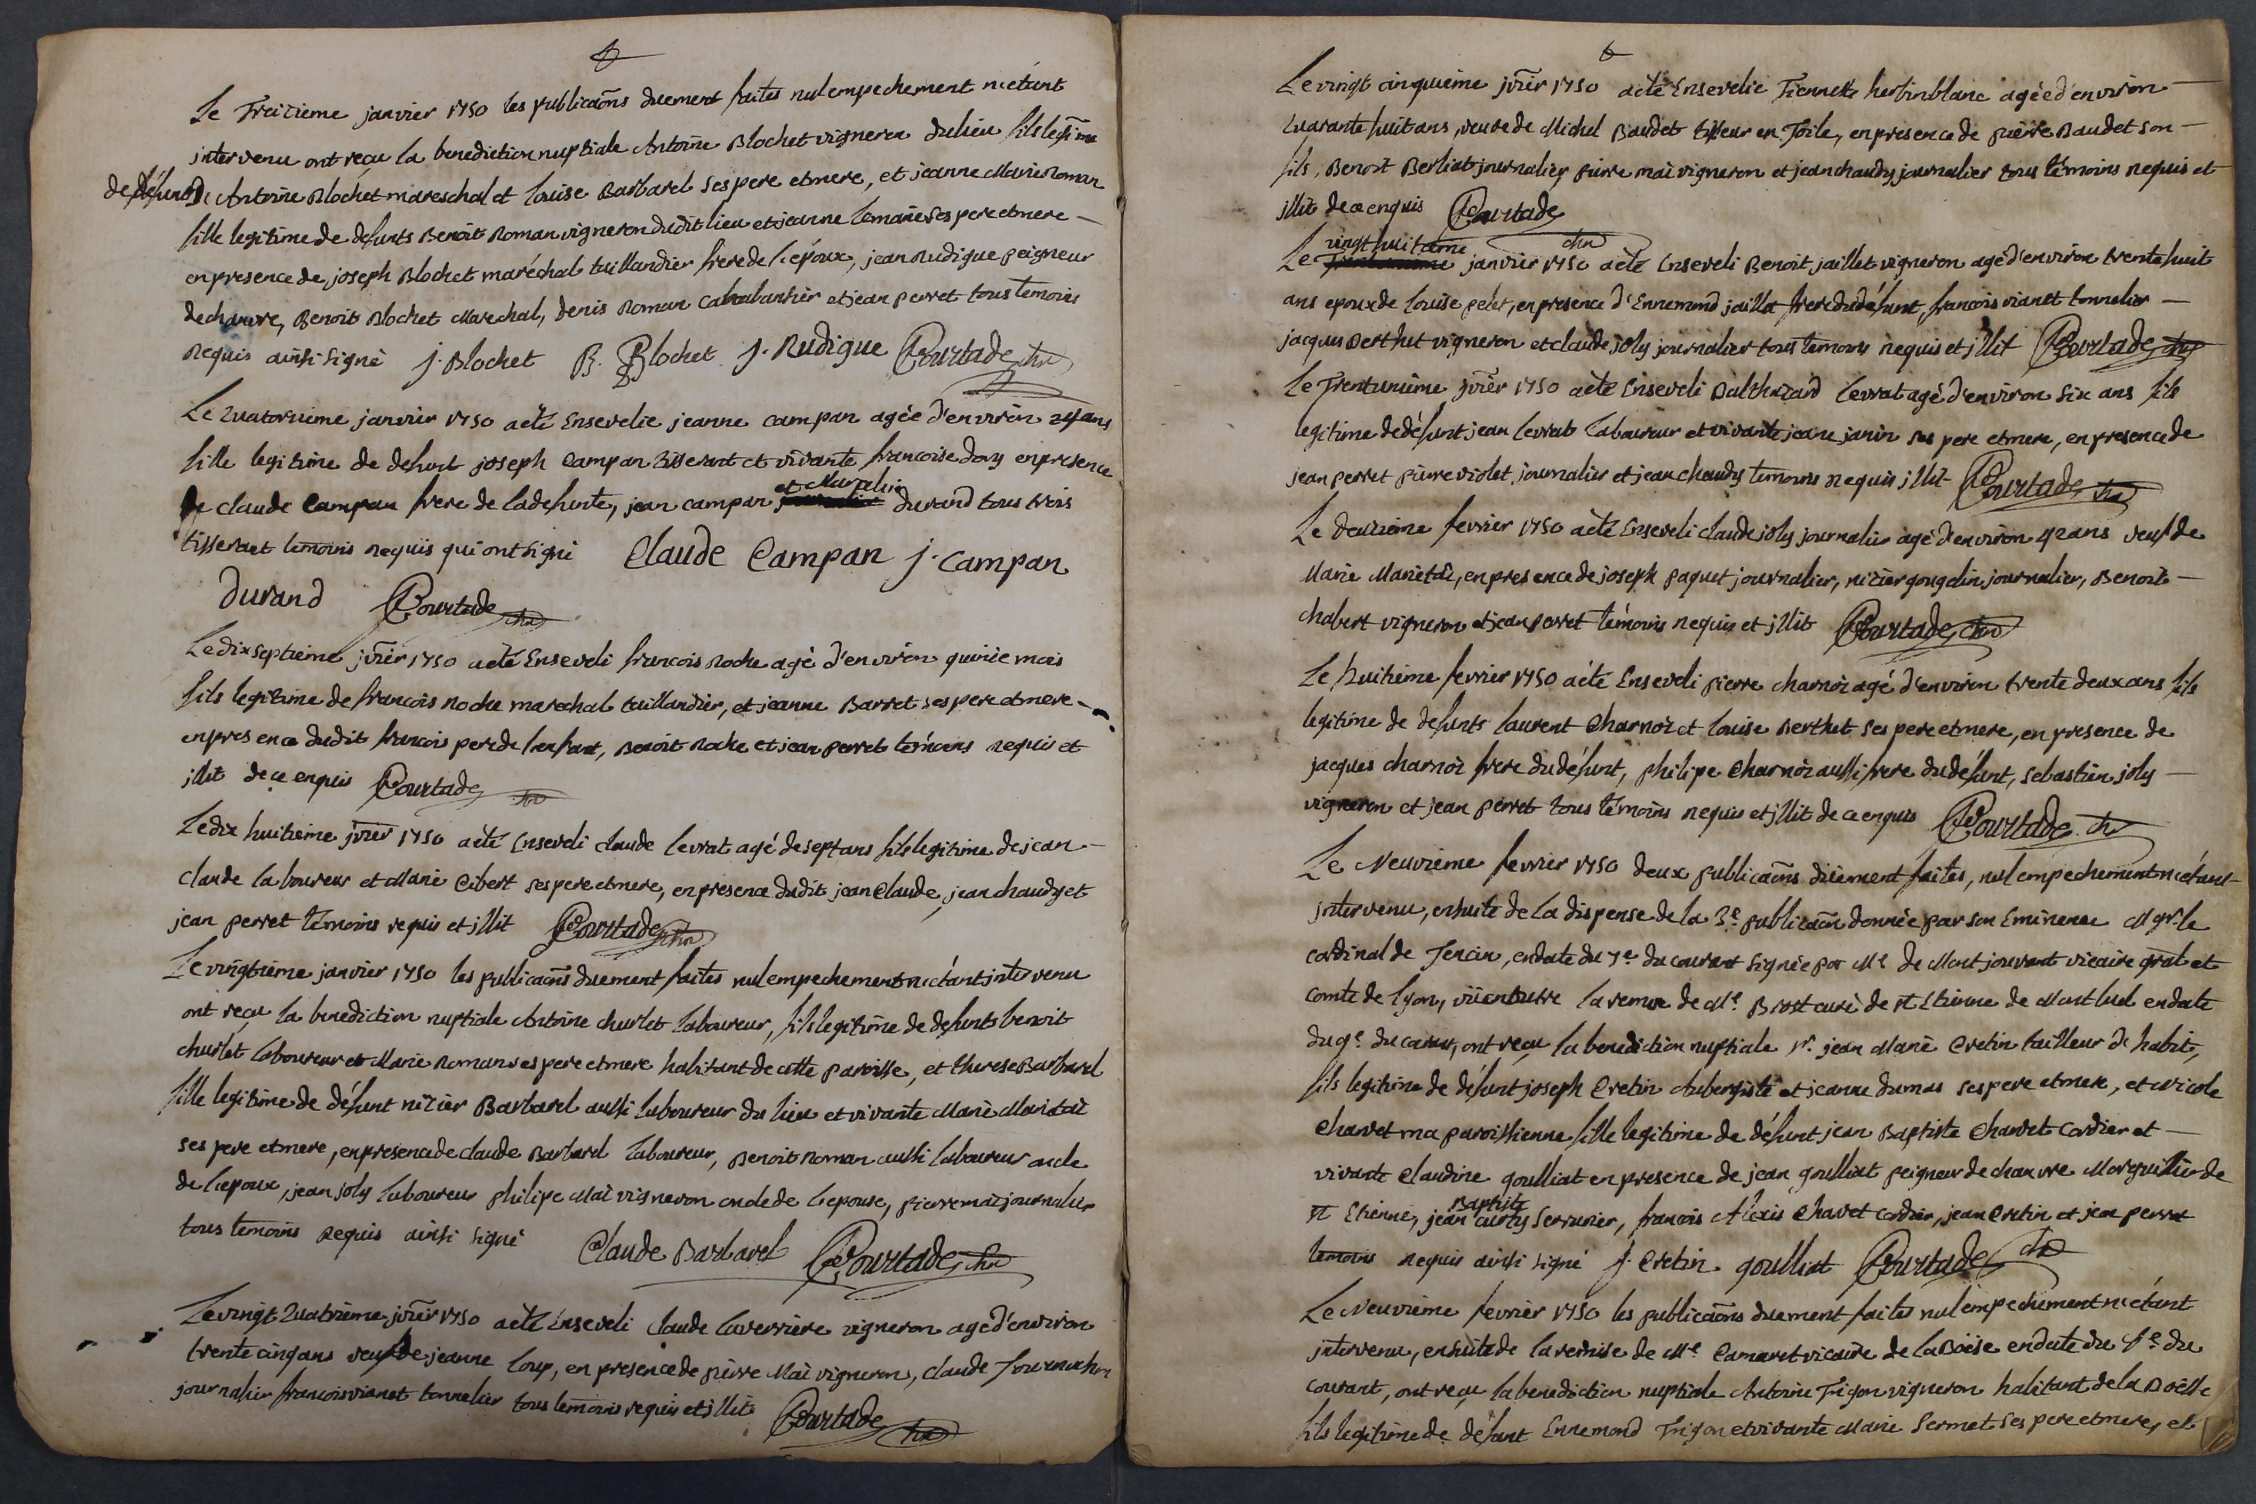 Le Treizieme janvier 1750 les publicaõns duement faites nul empechement n'étant
intervenu ont reçu la benediction nuptiale Antoine Blochet vigneron du lieu fils legitime
de défunt Antoine Blochet mareschal et Louise Barbarel ses pere et mere, et jeanne Marie Roman
fille legitime de defunts Benoit Roman vigneron dudit lieu et jeanne ses pere et mere —
en presence de joseph Blochet maréchal taillandier frere de l'époux, jean Rudigue peigneur
de chanvre, Benoit Blochet Marechal, denis Roman cabaretier et jean perret tous temoins
requis ainsi signé j. Blochet B. Blochet j. Rudigue Courtade
Le quatorzieme janvier 1750 a été Ensevelie jeanne campan agée d'environ ans
fille legitime de defunt joseph Campan tisserant et vivante francoise en presence
de claude Campan frere de la defunte, jean campan et Mathelin durand tous trois
tisserant temoins requis qui ont signé Claude Campan j. Campan
Durand Courtade
Le dix septieme jv̄ier 1750 a été Enseveli francois Roche agé d'environ quinze mois
fils legitime de francois Roche marechal taillandier, et jeanne Barret ses pere et mere —
en presence dudit francois pere de l'enfant, Benoit Roche et jean perret temoins requis et
illit. de ce enquis Courtade
Le dix huitieme jv̄ier 1750 a été Enseveli claude levrat agé de sept ans fils legitime de jean —
claude laboureur et Marie Cibert ses pere et mere, en presence dudit jean Claude, jean chaudy et
jean perret temoins requis et illit Courtade
Le vingtieme janvier 1750 les publicaõns duement faites nul empechement n'étant intervenu
ont reçu la benediction nuptiale Antoine churlet laboureur, fils legitime de defunts benoit
churlet laboureur et Marie Roman ses pere et mere habitant de cette paroisse, et therese Barbarel
fille legitime de défunt nizier Barbarel aussi laboureur du lieu et vivante Marie
ses pere et mere, en presence de claude Barbarel laboureur, Benoit Roman aussi laboureur oncle
de l'epoux, jean joly laboureur philipe Mai vigneron oncle de l'epouse, pierre mai journalier
tous temoins requis ainsi signé Claude Barbarel Courtade
Le vingt quatrieme jv̄ier 1750 a été Enseveli claude laverriere vigneron agé d'environ
trente cinq ans veuf de jeanne loup, en presence de pierre Mai vigneron, claude
journalier francois vianet tonnelier tous temoins requis et illit. Courtade
Le vingt cinquieme jv̄ier 1750 a été Ensevelie Fiennette herbinblanc agée d'environ —
quarante huit ans, veuve de Michel Baudet tisseur en Toile, en presence de pierre Baudet son —
fils, Benoit Berliat journalier pierre mai vigneron et jean chaudy journalier tous témoins requis et
illit. de ce enquis Courtade
Le vingt huitieme janvier 1750 a été Enseveli Benoit jaillet vigneron agé d'environ trente huit
ans epoux de Louise en presence d'Ennemond jaillet frere du défunt, francois vianet tonnelier —
jacques Berthet vigneron et claude joly journalier tous temoins requis et illit Courtade
Le Trentunieme jv̄ier 1750 a été Enseveli Balthazard levrat agé d'environ six ans fils
legitime de défunt jean levrat laboureur et vivante jeane janin ses pere et mere, en presence de
jean perret pierre violet, journalier et jean chaudy temoins requis illit Courtade
Le deuxieme fevrier 1750 a été Enseveli claude joly journalier agé d'environ ans veuf de
Marie en presence de joseph paquet journalier, nizier gougelin journalier, Benoit —
chabert vigneron et jean perret témoins requis et illit Courtade
Le huitieme fevrier 1750 a été Enseveli pierre charnoz agé d'environ trente deux ans fils
legitime de defunts laurent Charnoz et Louise Berthet ses pere et mere, en presence de
jacques charnoz frere du défunt, philipe Charnoz aussi frere du défunt, sebastien joly —
vigneron et jean perret tous témoins requis et illit de ce enquis Courtade
Le Neuvieme fevrier 1750 deux publicaõns düement faites, nul empechement n'étant
intervenu, ensuite de la dispense de la 3e. publicaõn donnée par son Eminence Mgr. le
cardinal de Tencin, en date du 7e. du courant signée par Mr. de Montjouvant vicaire gn̄al et
comte de lyon, vü en outre la remise de Mr. Brost curé de st. Etienne de Montluel en date
du 9e. du courant, ont reçu la benediction nuptiale sr. jean Marie Cretin tailleur d'habit,
fils legitime de défunt joseph Cretin Aubergiste et jeanne dumas ses pere et mere, et Nicole
Chavet ma paroissienne fille legitime de défunt jean Baptiste Chavet cordier et —
vivante Claudine goulliat en presence de jean goulliat peigneur de chanvre Marguillier de
st. Etienne, jean Baptiste curty serrurier, francois Alexis Chavet cordier, jean Cretin et jean perret
temoins requis ainsi signé J. Cretin. goulliat Courtade
Le Neuvieme fevrier 1750 les publicaõns duement faites nul empechement n'étant
intervenu, ensuite de la remise de Mr. Camaret vicaire de la Boisse en date du du
courant, ont reçu la benediction nuptiale Antoine Trigon vigneron habitant de la Boisse
fils legitime de défunt Ennemond Trigon et vivante Marie Sermet ses pere et mere, et